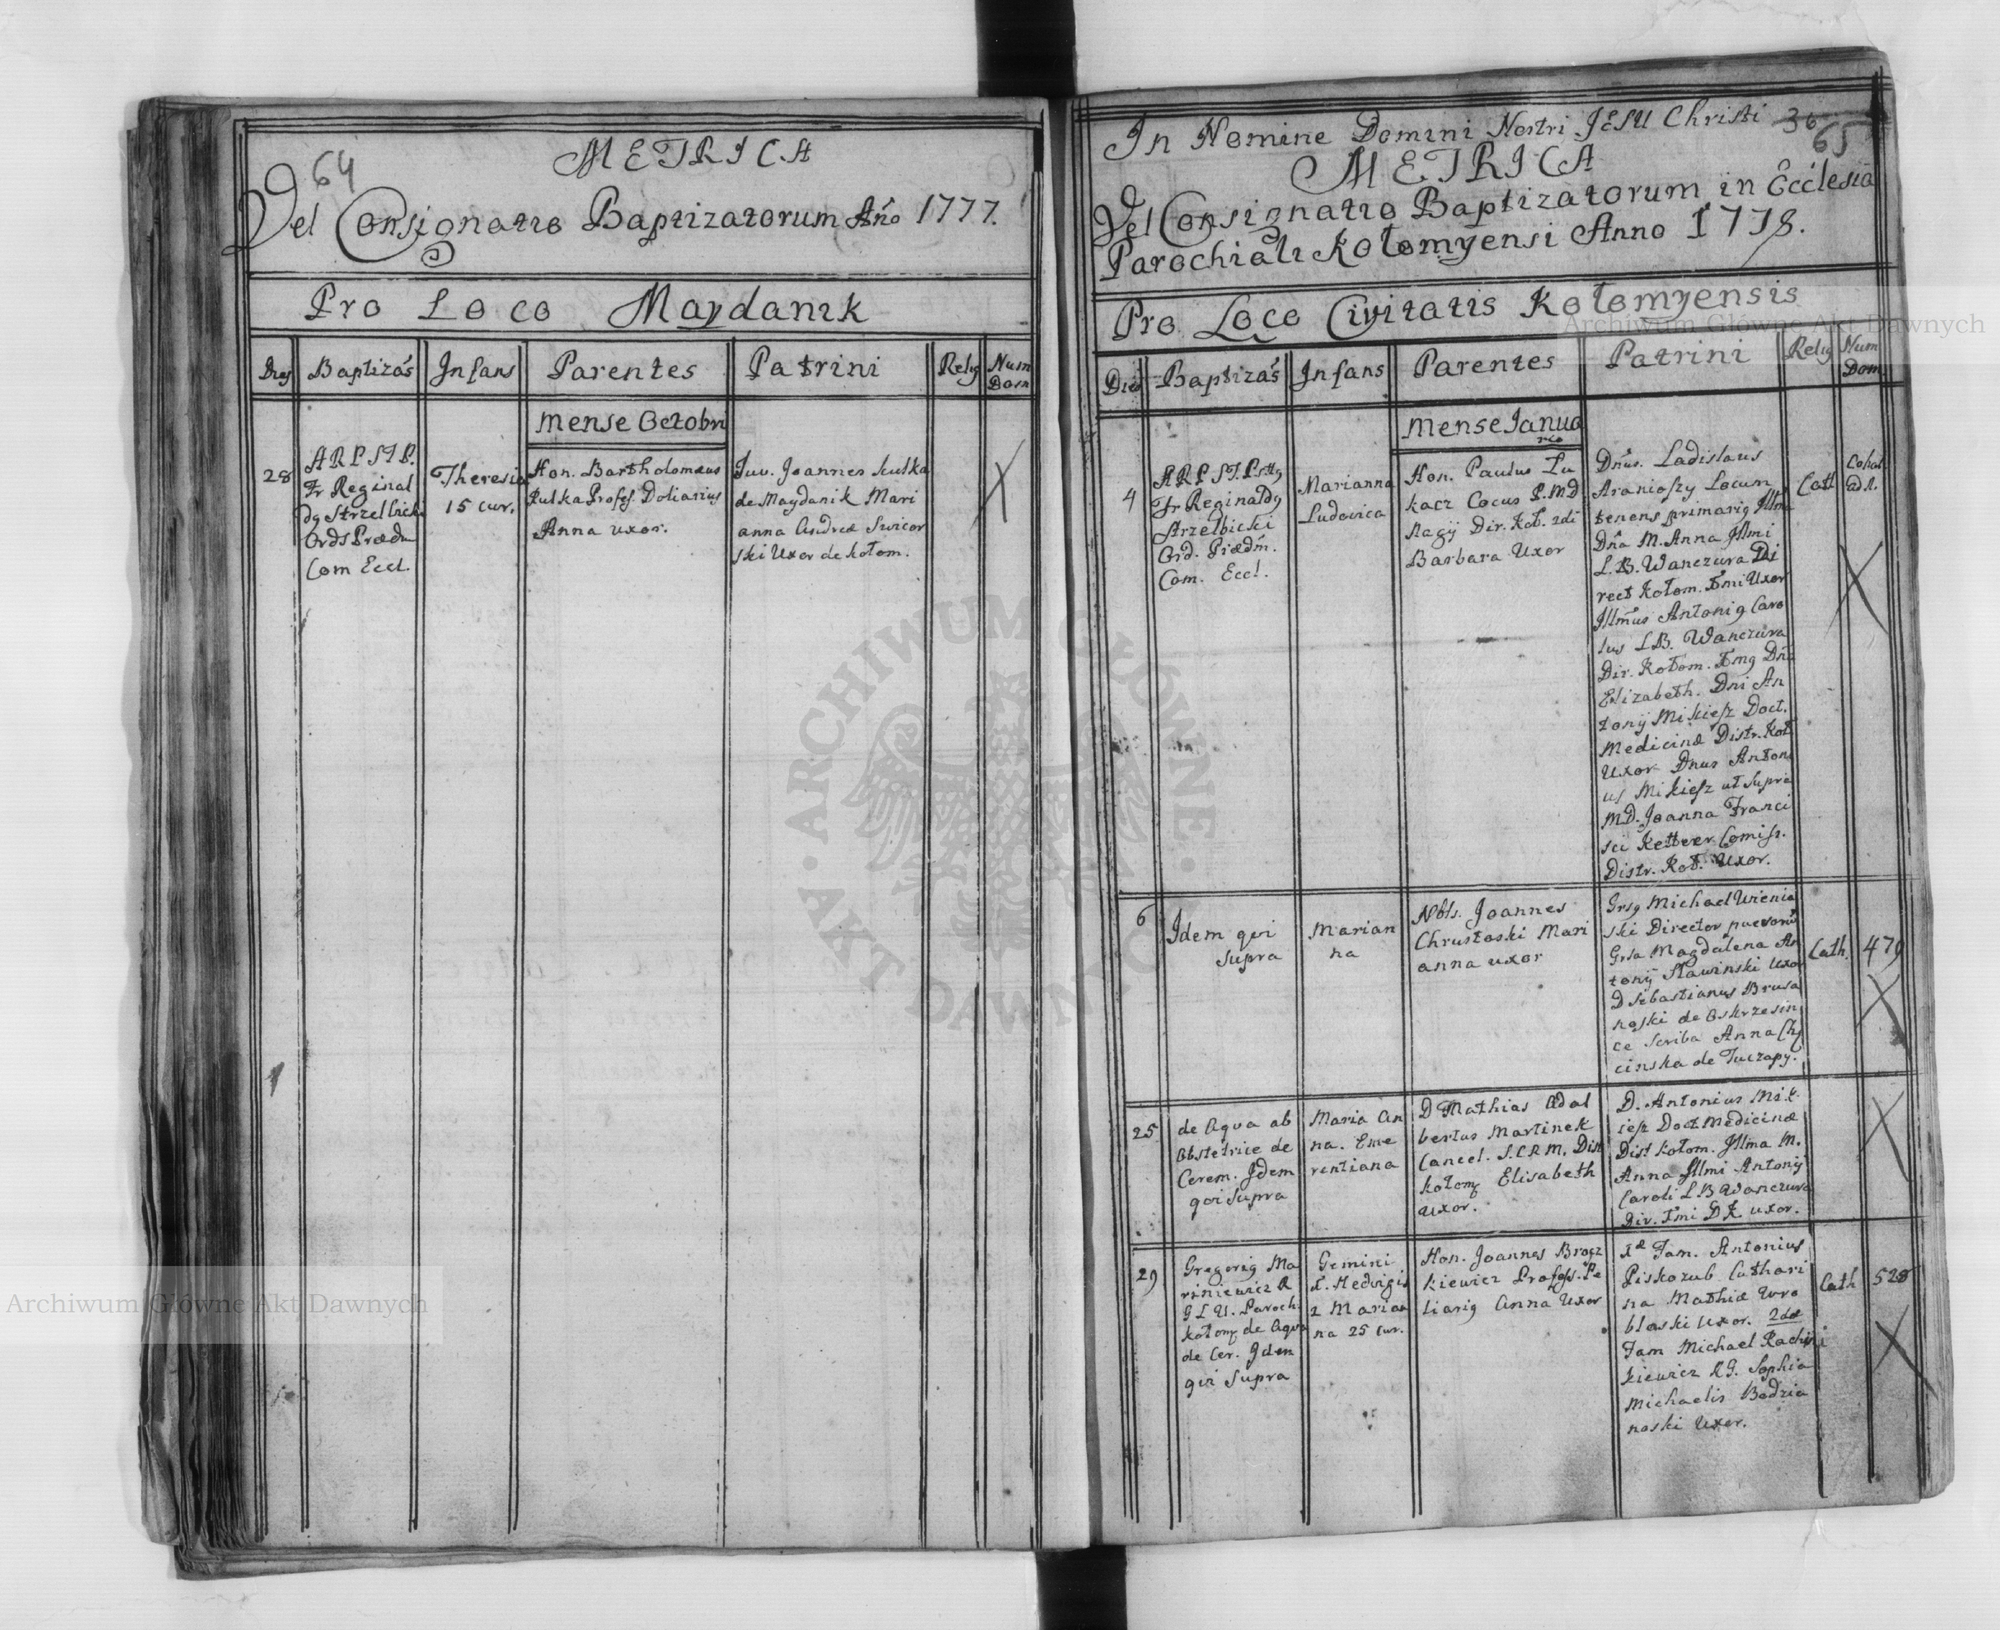 64
METRICA
Vel Consignatio Baptizatorum Año 1777.
Pro Loco Maydanik
Dies
Baptizãs
Infans
Parentes
Patrini
Relig
Num
Dom
Mense Octobri
28
ARPSTP.
Fr Reginal
dg Strzelbicki
Ord. Prædm
Com Eccl.
Theresia
15 cur.
Hon. Bartholomæus
Kulka Profess. Doliarius
Anna uxor.
Juv. Joannes Kulka
de Maydanik Mari
anna Andreæ Swicor
ski Uxor de Kołom.
In Nomine Domini Nostri JESU Christi
36
65
METRICA
Vel Consignatio Baptizatorum in Ecclesia
Parochiali Kołomyensi Anno 1778.
Pro Loco Civitatis Kołomyensis
Dies
Baptizãs
Infans
Parentes
Patrini
Relig
Num
Dom
Mense Janua
rio
4
Fr Reginaldg
Strzelbicki
Ord. Prædm.
Com. Eccl.
Marianna
Ludovica
Hon. Paulus Lu
kacz Cocus P. MD
Nagÿ Dir. Koł. 2di
Barbara Uxor
Dnus. Ladislaus
Araniossy Locum
tenens primarig Illma
Dña M. Anna Illmi
L. B. Wanczura Di
rect Kołom. Fmi Uxor
Illmus Antonig Caro
lus L.B. Wanczura
Dir. Kołom. Fmg Dña
Elizabeth. Dni An
tonÿ Mikiesz Doct.
Medicinæ Distr. Koł
Uxor Dnus Antoni
us Mikiesz ut supra
MD. Joanna Franci
sci Ketterer Comiss.
Distr. Koł. Uxor.
Cath
6
Idem qvi
supra
Marian
na
Nbls. Joannes
Chrustoski Mari
anna uxor
Grsg Michael Urenio
ski Director puerorũ
Grsa Magdalena An
tonÿ Sławinski Uxor
D Sebastianus Brusa
noski de Oskrzesin
ce Scriba Anna Chę
cinska de Tuczapy.
Cath.
479
25
de Aqva ab
Obstetrice de
Cerem. Idem
qvi supra
Maria An
na. Eme
rentiana
D Mathias Adal
bertus Martinek
Cancel. S.C.R.M. Dist
Kołomg Elisabeth
uxor.
D. Antonius Mik
iesz Doct Medicinæ
Dist Kołom. Illma M.
Anna Illmi Antonÿ
Caroli L.B Wanczura
Dir. Fmi DK uxor.
29
Gregorig Ma
riniewicz R
G L U. Paroch.
Kołomg de Aqva
de Cer. Idem
qvi supra
Gemini
1. Hedvigis
2 Marian
na 25 cur.
Hon. Joannes Brocz
kiewicz Profess. Pe
liarig Anna Uxor
1æ Fam. Antonius
Piskozub Cathari
na Mathiæ Wro
bloski Uxor. 2dæ
Fam Michael Rachm
kiewicz RG. Sophia
Michaelis Bodzia
noski Uxor.
Cath
528
Archiwum Główne Akt Dawnych
Archiwum Główne Akt Dawnych
ARCHIWUM GŁÓWNE AKT DAWNYCH